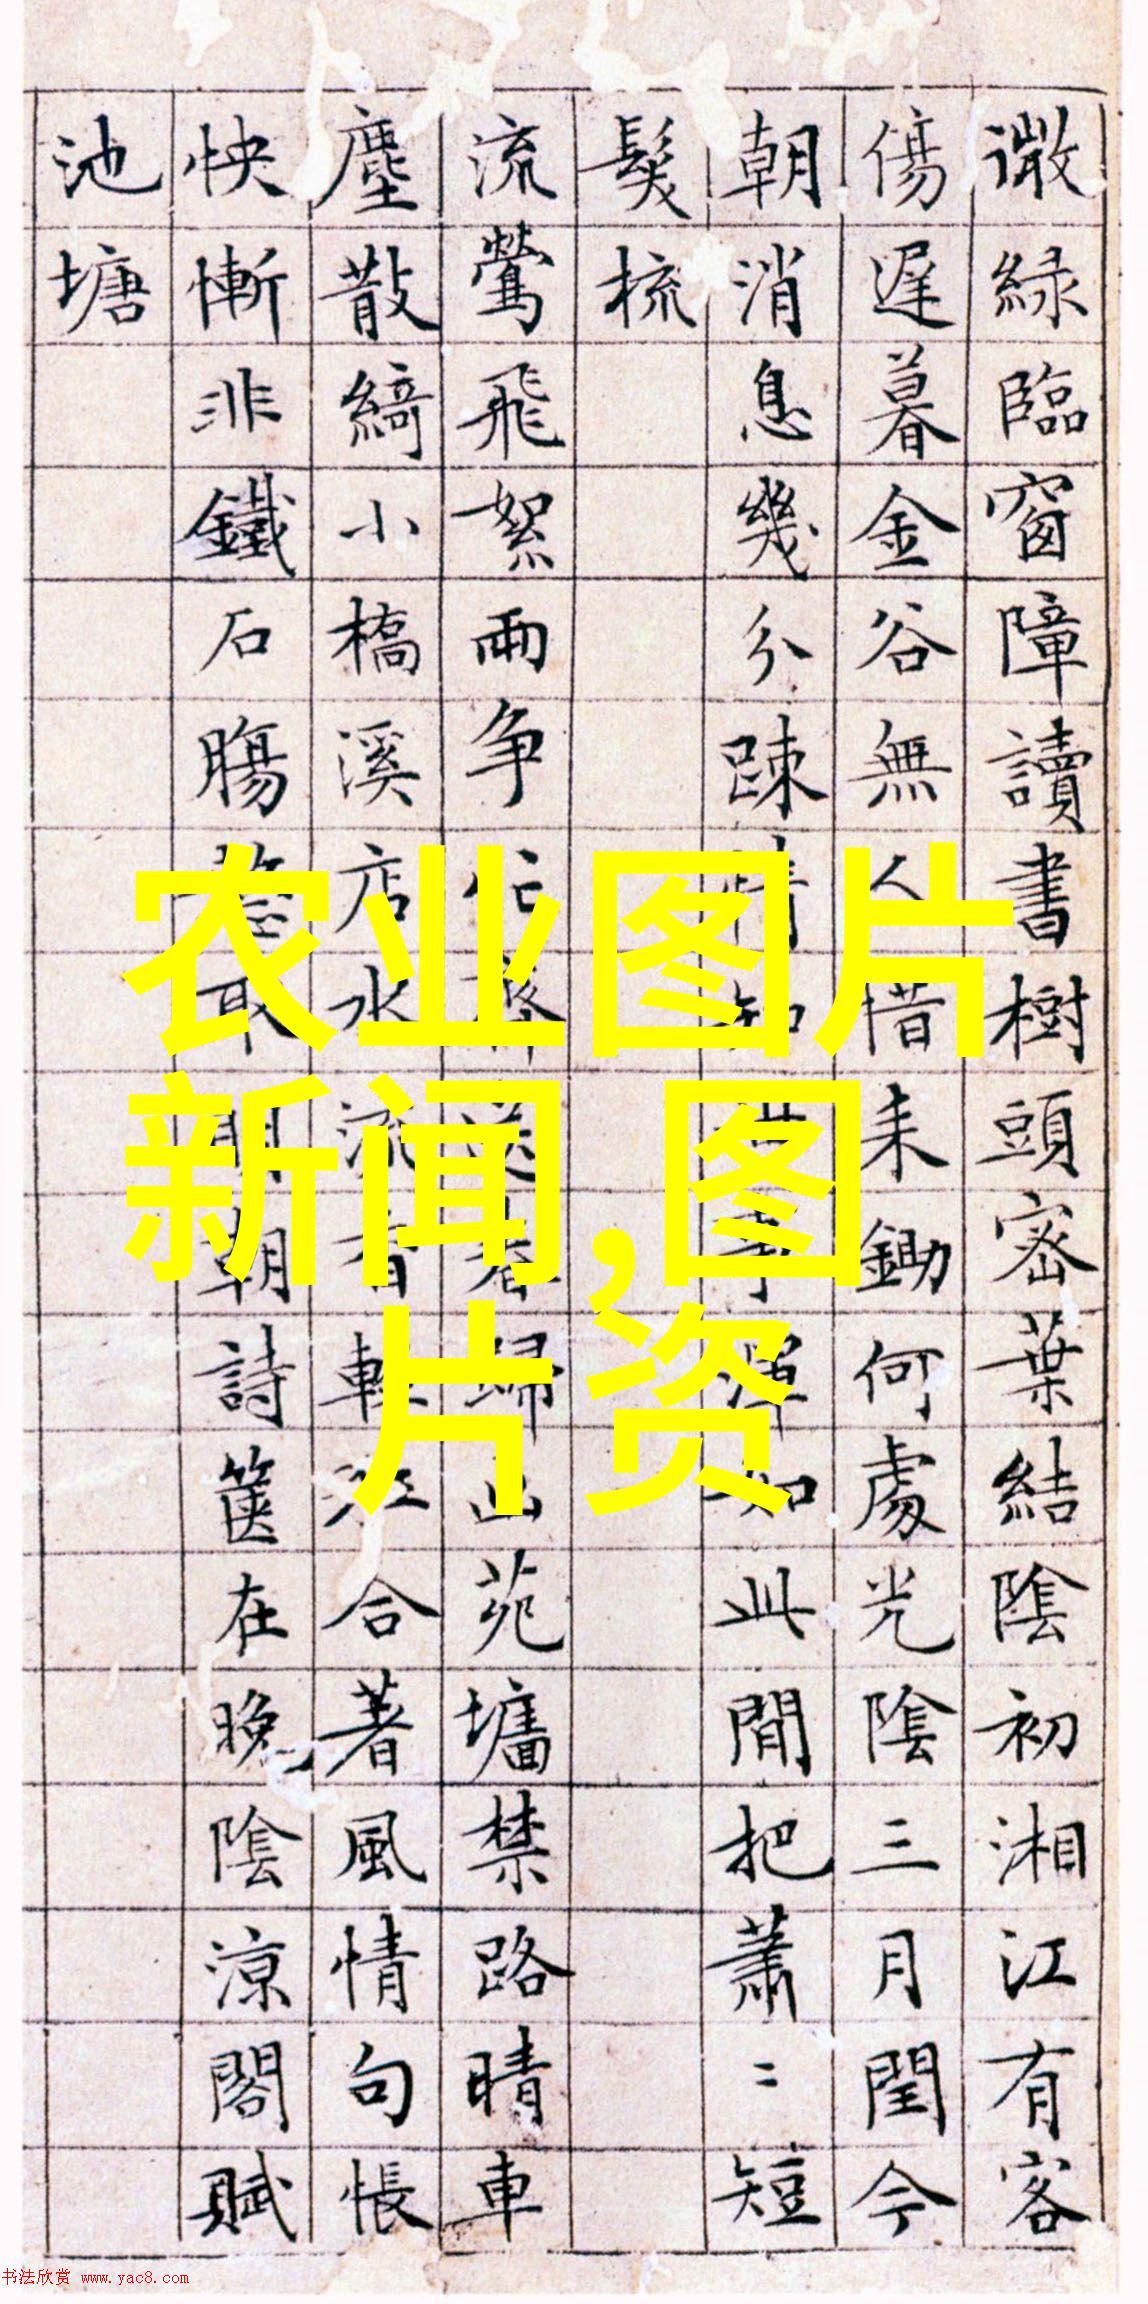 微緑臨窗障讀書樹頭密葉結陰初湘江有客
傷遲暮金谷無人惜耒鋤何處光陰三月閏今
朝消息幾分踈情知 如此間把蕭二短
髮梳
流鶯飛絮兩争 春歸山苑墻禁路晴車
塵散綺小橋溪店水流 輕 合著風情句悵
怏慚非鐵石腸 取明朝詩篋在晚陰涼閣賦
池塘
农业图片
新闻,图
片资
书法欣赏 www.yac8.com